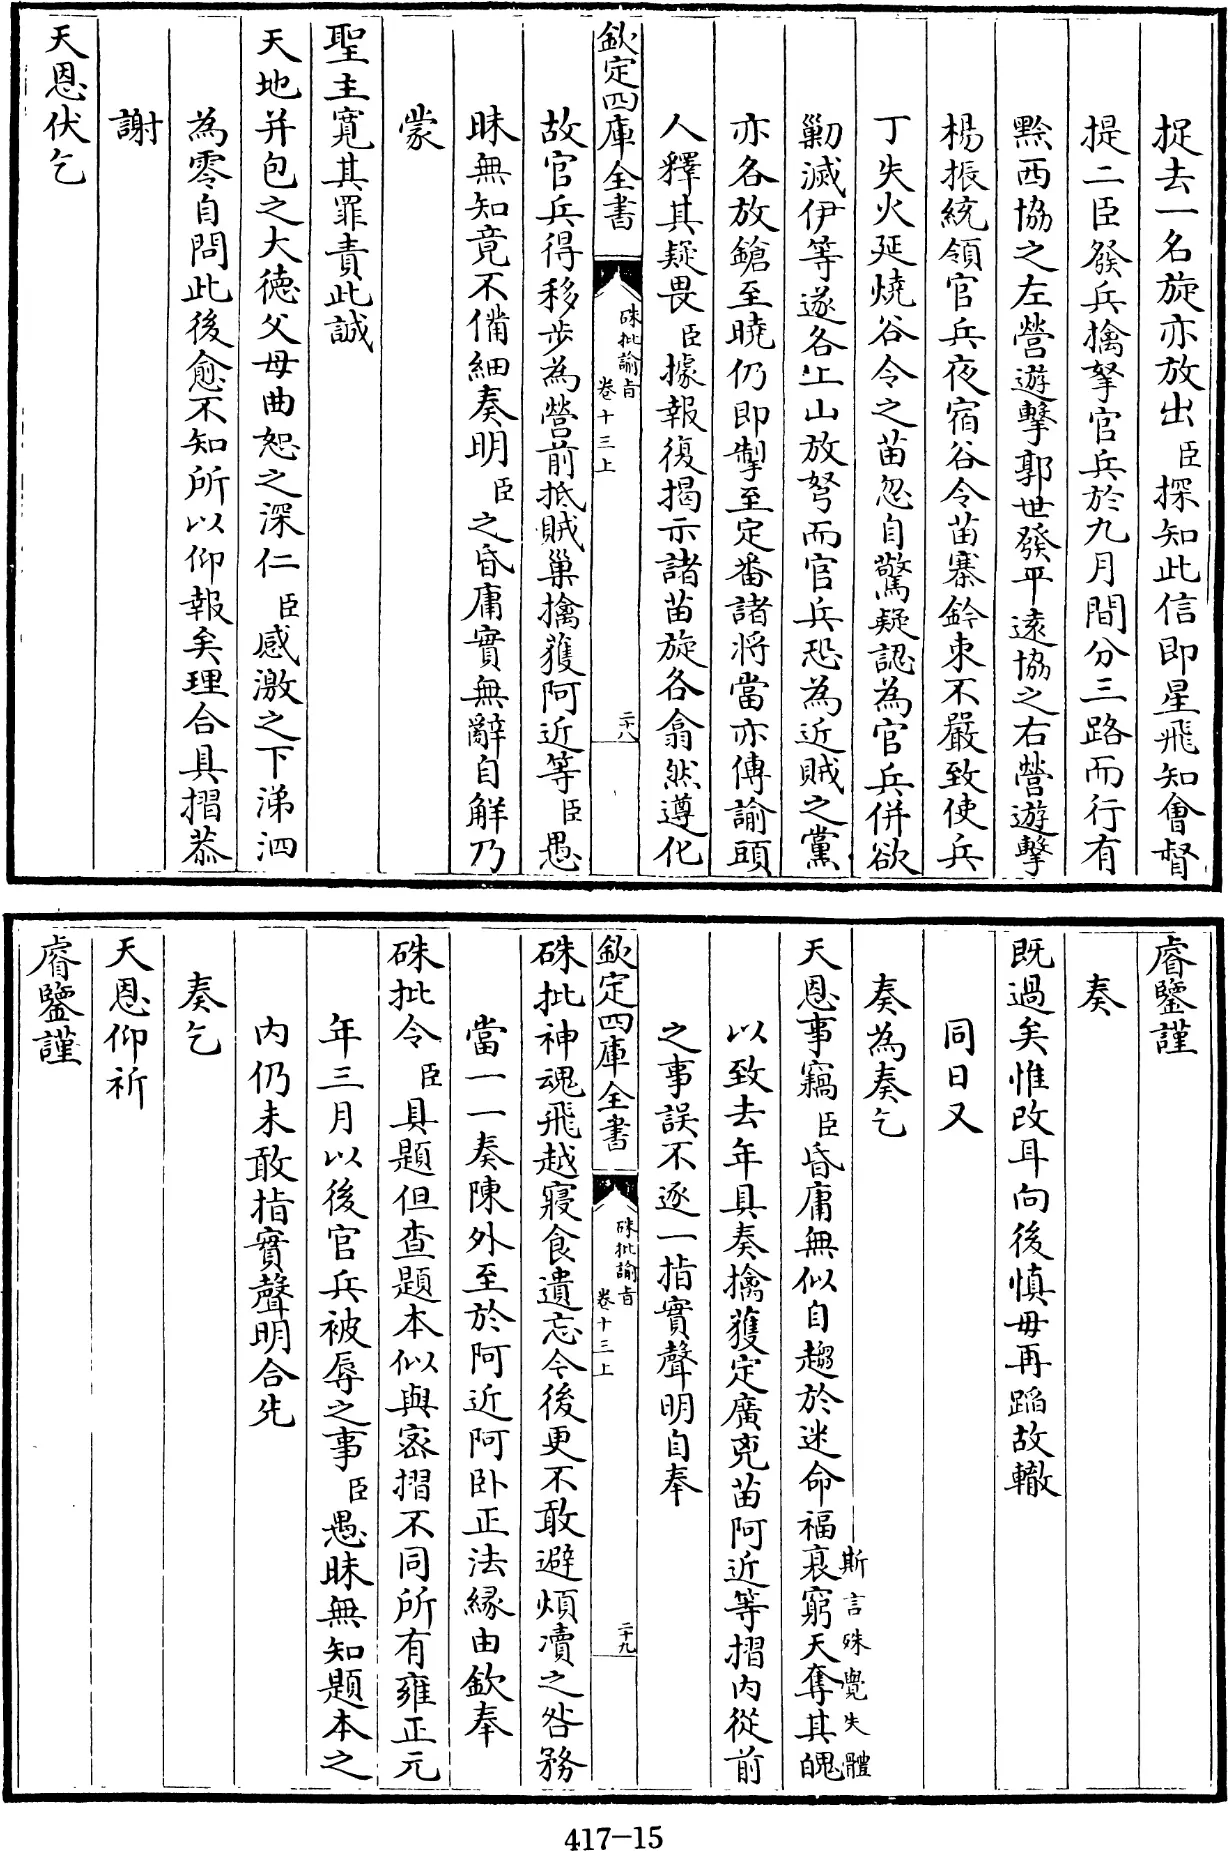 捉去一名旋亦放出臣探知此信即星飛知會督
提二臣發兵擒拏官兵於九月間分三路而行有
黔西協之左營遊擊郭世發平遠協之右營遊擊
楊振統領官兵夜宿谷令苗寨鈐束不嚴致使兵
丁失火延燒谷令之苗忽自驚疑認為官兵併欲
剿滅伊等遂各上山放弩而官兵恐為近賊之黨
亦各放鎗至曉仍即掣至定番諸將當亦傳諭頭
人釋其疑畏臣據報復揭示諸苗旋各翕然遵化
欽定四庫全書
硃批諭旨
卷十三上
二十八
故官兵得移步為營前抵賊巢擒獲阿近等臣愚
昧無知竟不備細奏明臣之昏庸實無辭自解乃
蒙
聖主寛其罪責此誠
天地并包之大德父母曲恕之深仁臣感激之下涕泗
為零自問此後愈不知所以仰報矣理合具摺恭
謝
天恩伏乞
睿鑒謹
奏
既過矣惟改耳向後慎毋再蹈故轍
同日又
奏為奏乞
天恩事竊臣昏庸無似自趨於迷命福衰窮天奪其魄
斯言殊覺失體
以致去年具奏擒獲定廣兇苗阿近等摺内從前
之事誤不逐一指實聲明自奉
欽定四庫全書
硃批諭旨
卷十三上
二十九
硃批神魂飛越寢食遺忘令後更不敢避煩凟之咎務
當一一奏陳外至於阿近阿卧正法緣由欽奉
硃批令臣具題但查題本似與宻摺不同所有雍正元
年三月以後官兵被辱之事臣愚昧無知題本之
内仍未敢指實聲明合先
奏乞
天恩仰祈
睿鑒謹
417-15